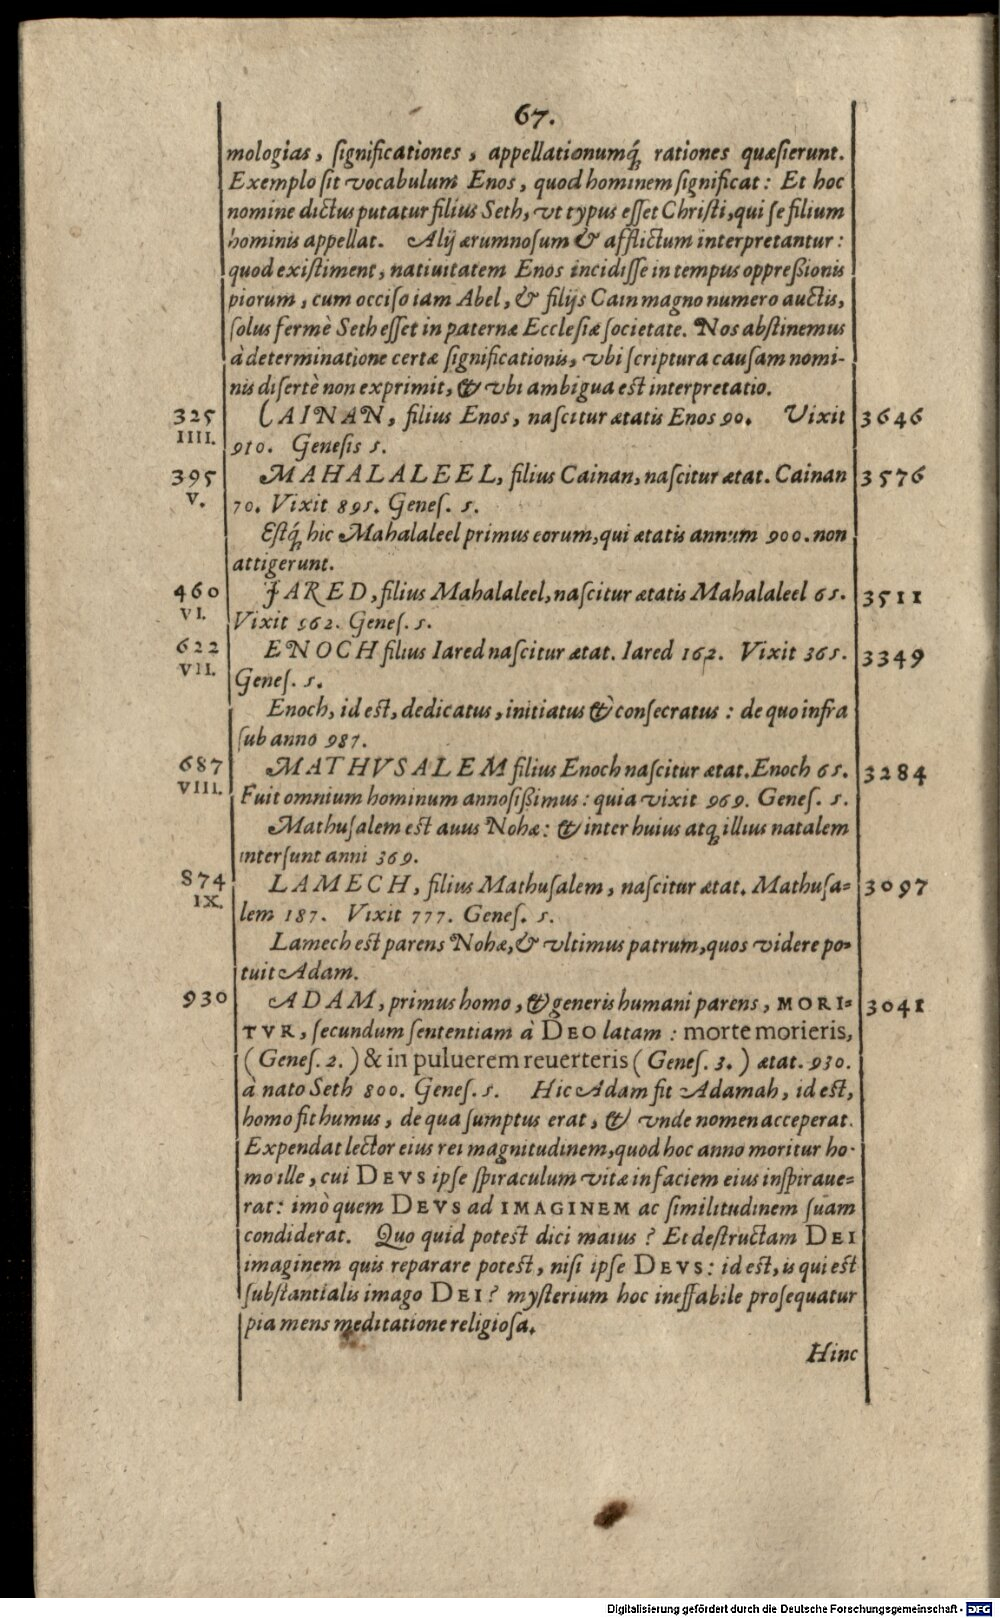 67.
mologias, ſignificationes, appellationumq́; rationes quæſierunt.
Exemplo ſit vocabulum Enos, quod hominem ſignificat: Et hoc
nomine dictus putatur filius Seth, vt typus eſſet Chriſti, qui ſe filium
hominis appellat. Alij ærumnoſum & afflictum interpretantur:
quod exiſtiment, natiuitatem Enos incidiſſe in tempus oppreßionis
piorum, cum occiſo iam Abel, & filijs Cain magno numero auctis,
ſolus fermè Seth eſſet in paternæ Eccleſiæ ſocietate. Nos abſtinemus
à determinatione certæ ſignificationis, vbi ſcriptura cauſam nomi-
nis diſertè non exprimit, & vbi ambigua est interpretatio.
325 CAINAN, filius Enos, naſcitur ætatis Enos 90. Vixit 3646
IIII. 910. Geneſis 5.
395 MAHALALEEL, filius Cainan, naſcitur ætat. Cainan 3576
V. 70. Vixit 895. Geneſ. 5.
Eſtq́; hic Mahalaleel primus eorum, qui ætatis annum 900. non
attigerunt.
460 JARED, filius Mahalaleel, naſcitur ætatis Mahalaleel 65. 3511
VI. Vixit 962. Geneſ. 5.
622 ENOCH filius Iared naſcitur ætat. Iared 162. Vixit 365. 3349
VII. Geneſ. 5.
Enoch, id est, dedicatus, initiatus & conſecratus: de quo infra
ſub anno 987.
687 MATHVSALEM filius Enoch naſcitur ætat. Enoch 65. 3284
VIII. Fuit omnium hominum annoſißimus: quia vixit 969. Geneſ. 5.
Mathuſalem est auus Nohæ: & inter huius atq; illius natalem
interſunt anni 369.
874 LAMECH, filius Mathuſalem, naſcitur ætat. Mathuſa= 3097
IX. lem 187. Vixit 777. Geneſ. 5.
Lamech est parens Nohæ, & vltimus patrum, quos videre po=
tuit Adam.
930 ADAM, primus homo, & generis humani parens, MORI= 3041
TVR, ſecundum ſententiam à DEO latam: morte morieris,
(Geneſ. 2.) & in puluerem reuerteris (Geneſ. 3.) ætat. 930.
à nato Seth 800. Geneſ. 5. Hic Adam fit Adamah, id est,
homo fit humus, de qua ſumptus erat, & vnde nomen acceperat.
Expendat lector eius rei magnitudinem, quod hoc anno moritur ho-
mo ille, cui DEVS ipſe ſpiraculum vitæ in faciem eius inſpiraue=
rat: imò quem DEVS ad IMAGINEM ac ſimilitudinem ſuam
condiderat. Quo quid potest dici maius? Et deſtructam DEI
imaginem quis reparare potest, niſi ipſe DEVS: id est, is qui est
ſubſtantialis imago DEI? myſterium hoc ineffabile proſequatur
pia mens meditatione religioſa.
Hinc
Digitalisierung gefördert durch die Deutsche Forschungsgemeinschaft - DFG